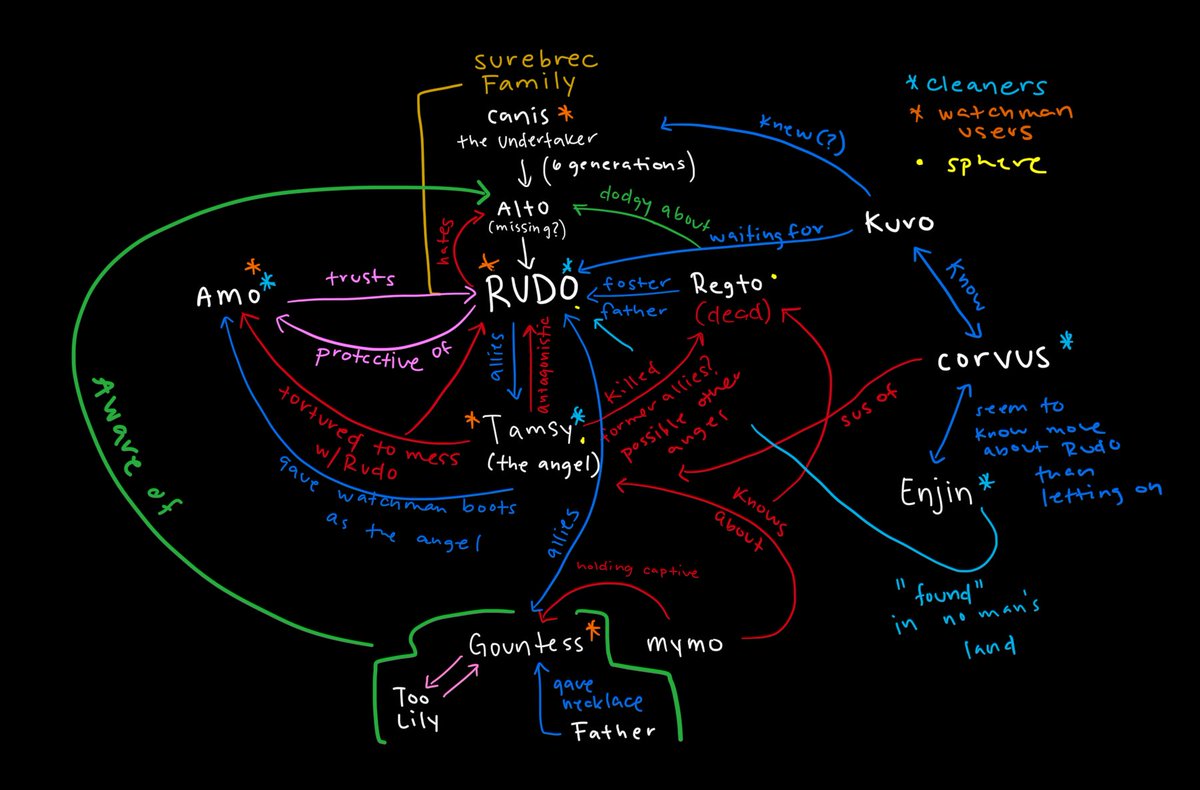 surebrec
Family
canis*
the undertaker
(6 generations)
Alto
(missing?)
*cleaners
* watchman
users
• sphere
knew(?)
dodgy about
waiting for
Kuro
hates
Amo
trusts
RUDO
foster
father
Regto
(dead)
Know
protective of
allies
antagonistic
corvus*
Killed
former allies?
possible other
angel
sus of
*Tamsy*
(the angel)
tortured to mess
w/Rudo
gave watchman boots
as the angel
Aware of
seem to
know more
about Rudo
than
letting on
Enjin*
Knows
about
allies
holding captive
"found"
in no man's
land
Gountess*
mymo
Too
Lily
gave
necklace
Father